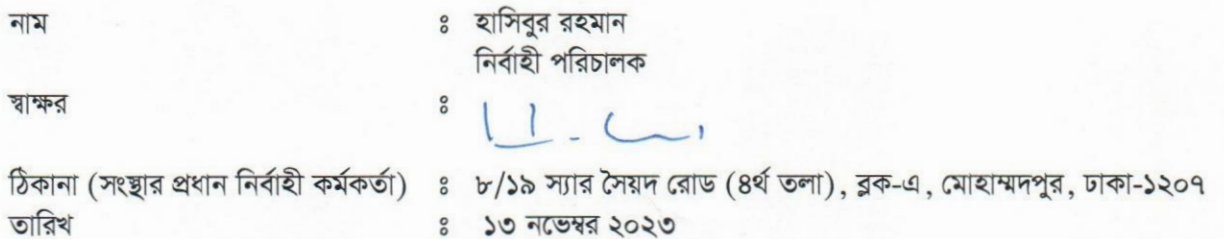 নাম ঃ হাসিবুর রহমান
নির্বাহী পরিচালক
স্বাক্ষর ঃ
ঠিকানা (সংস্থার প্রধান নির্বাহী কর্মকর্তা) ঃ ৮/১৯ স্যার সৈয়দ রোড (৪র্থ তলা), ব্লক-এ, মোহাম্মদপুর, ঢাকা-১২০৭
তারিখ ঃ ১৩ নভেম্বর ২০২৩